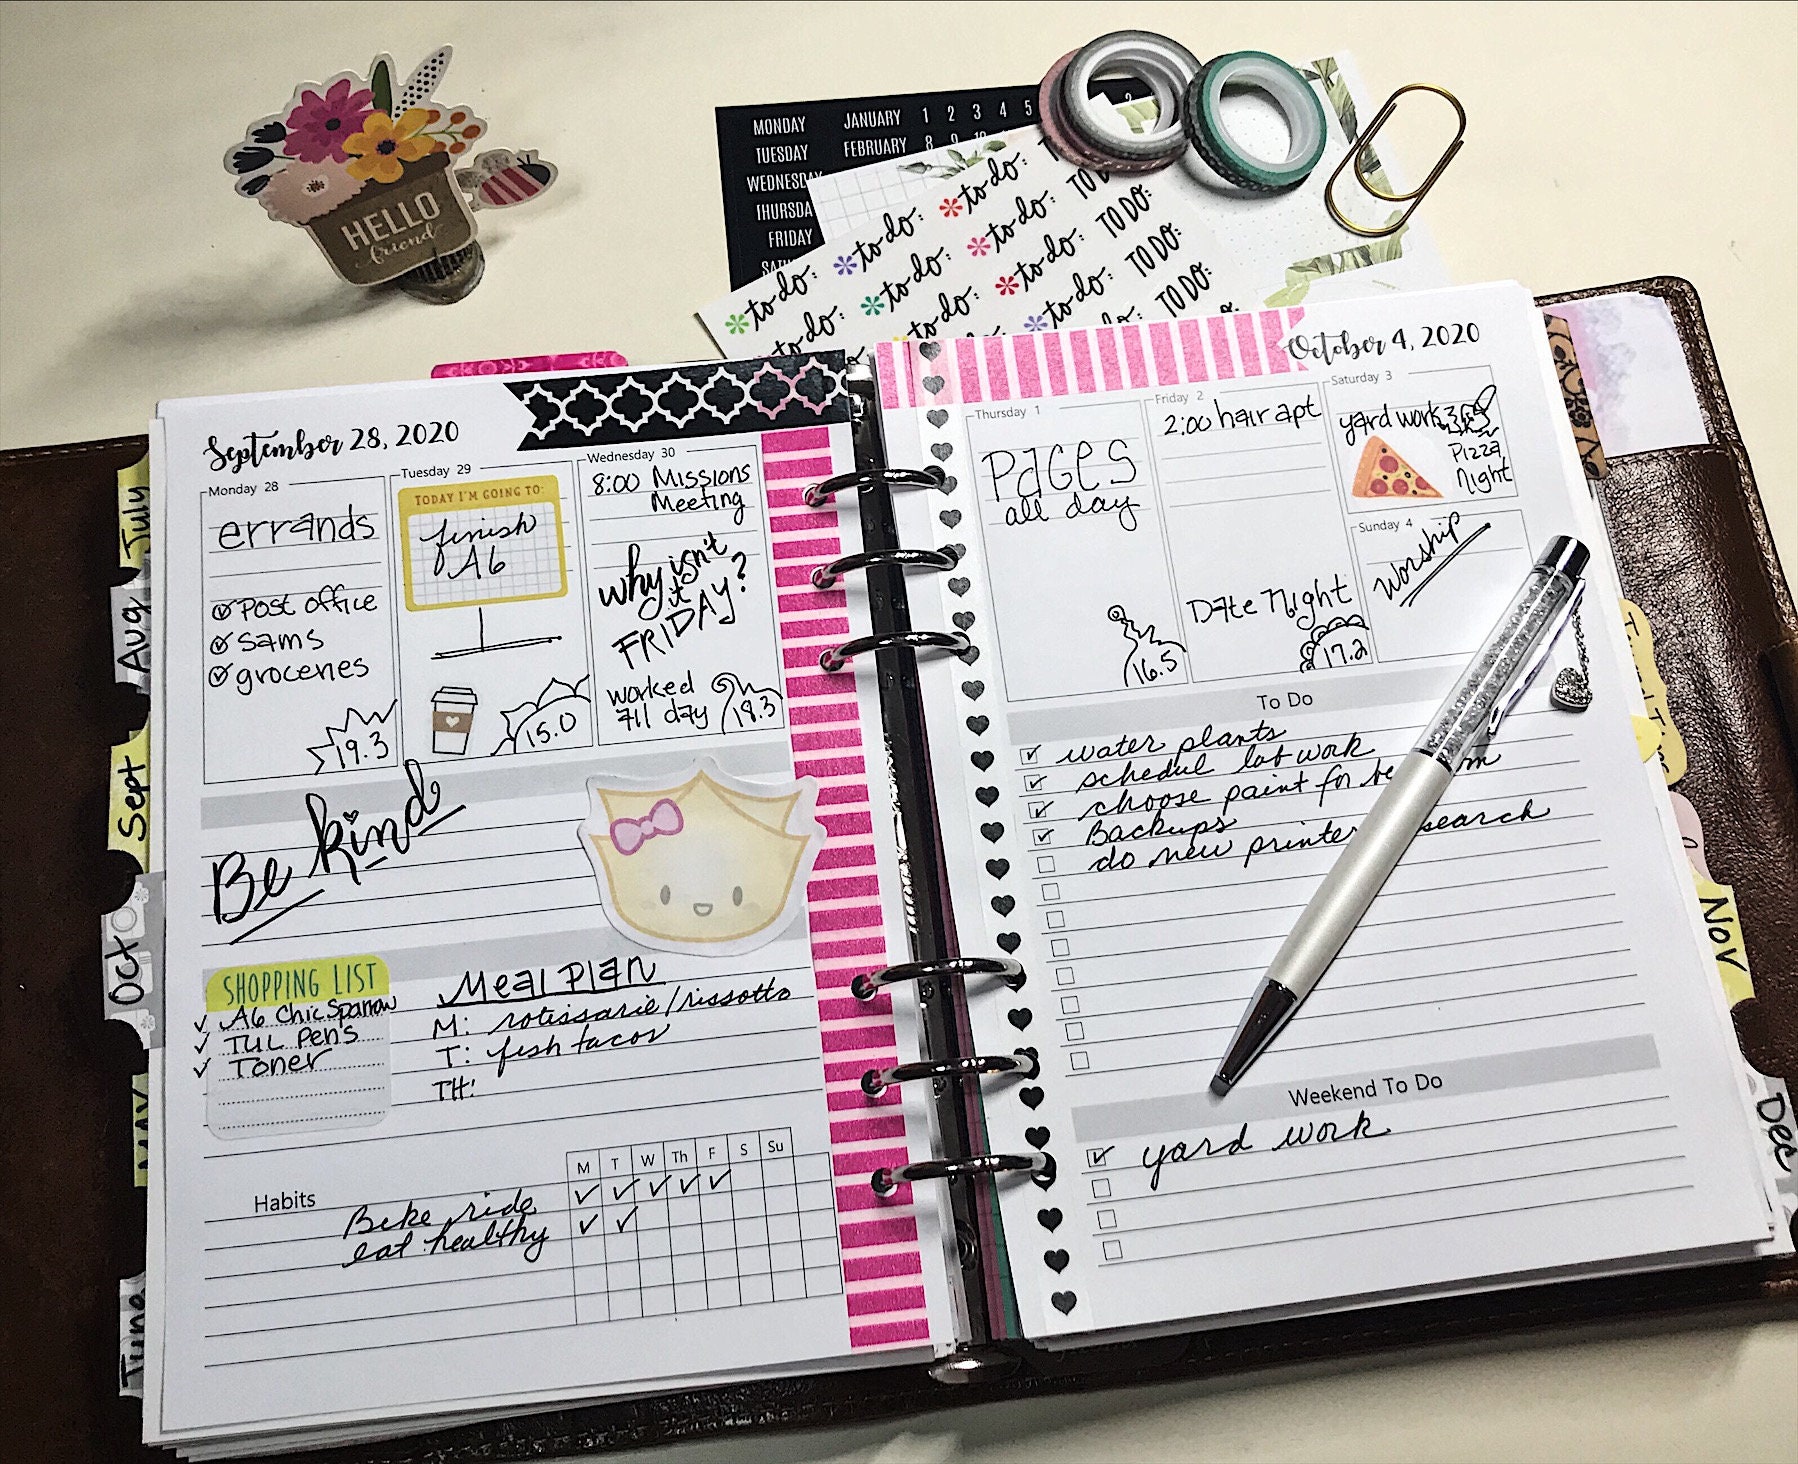 HELLO
friend
MONDAY JANUARY 1 2 3 4 5
TUESDAY FEBRUARY 8 9 10
WEDNESDAY
THURSDA
FRIDAY
SAT
to do: to do: to do: TO DO:
to do: to do: to do: TO DO:
to do: to do: to do: TO DO:
to do: to do: TO DO:
September 28, 2020
Monday 28
errands
Post office
Sams
groceries
19.3
Tuesday 29
TODAY I'M GOING TO:
finish
A6
15.0
Wednesday 30
8:00 Missions
Meeting
why isn't
it
FRIDAY?
worked
all day
18.3
Be kind
SHOPPING LIST
A6 Chic Sparrow
TUL Pen's
Toner
Meal Plan
M: rotissarie/rissotto
T: fish tacos
TH:
Habits
M T W Th F S Su
Bike ride
eat healthy
October 4, 2020
Thursday 1
PAGES
all day
16.5
Friday 2
2:00 hair apt
Date Night
17.2
Saturday 3
yard work
Pizza
Night
Sunday 4
Worship
To Do
water plants
schedul lab work
choose paint for be m
Backups
do new printer search
Weekend To Do
yard work
July
Aug
Sept
Oct
MAY
June
Nov
Dec